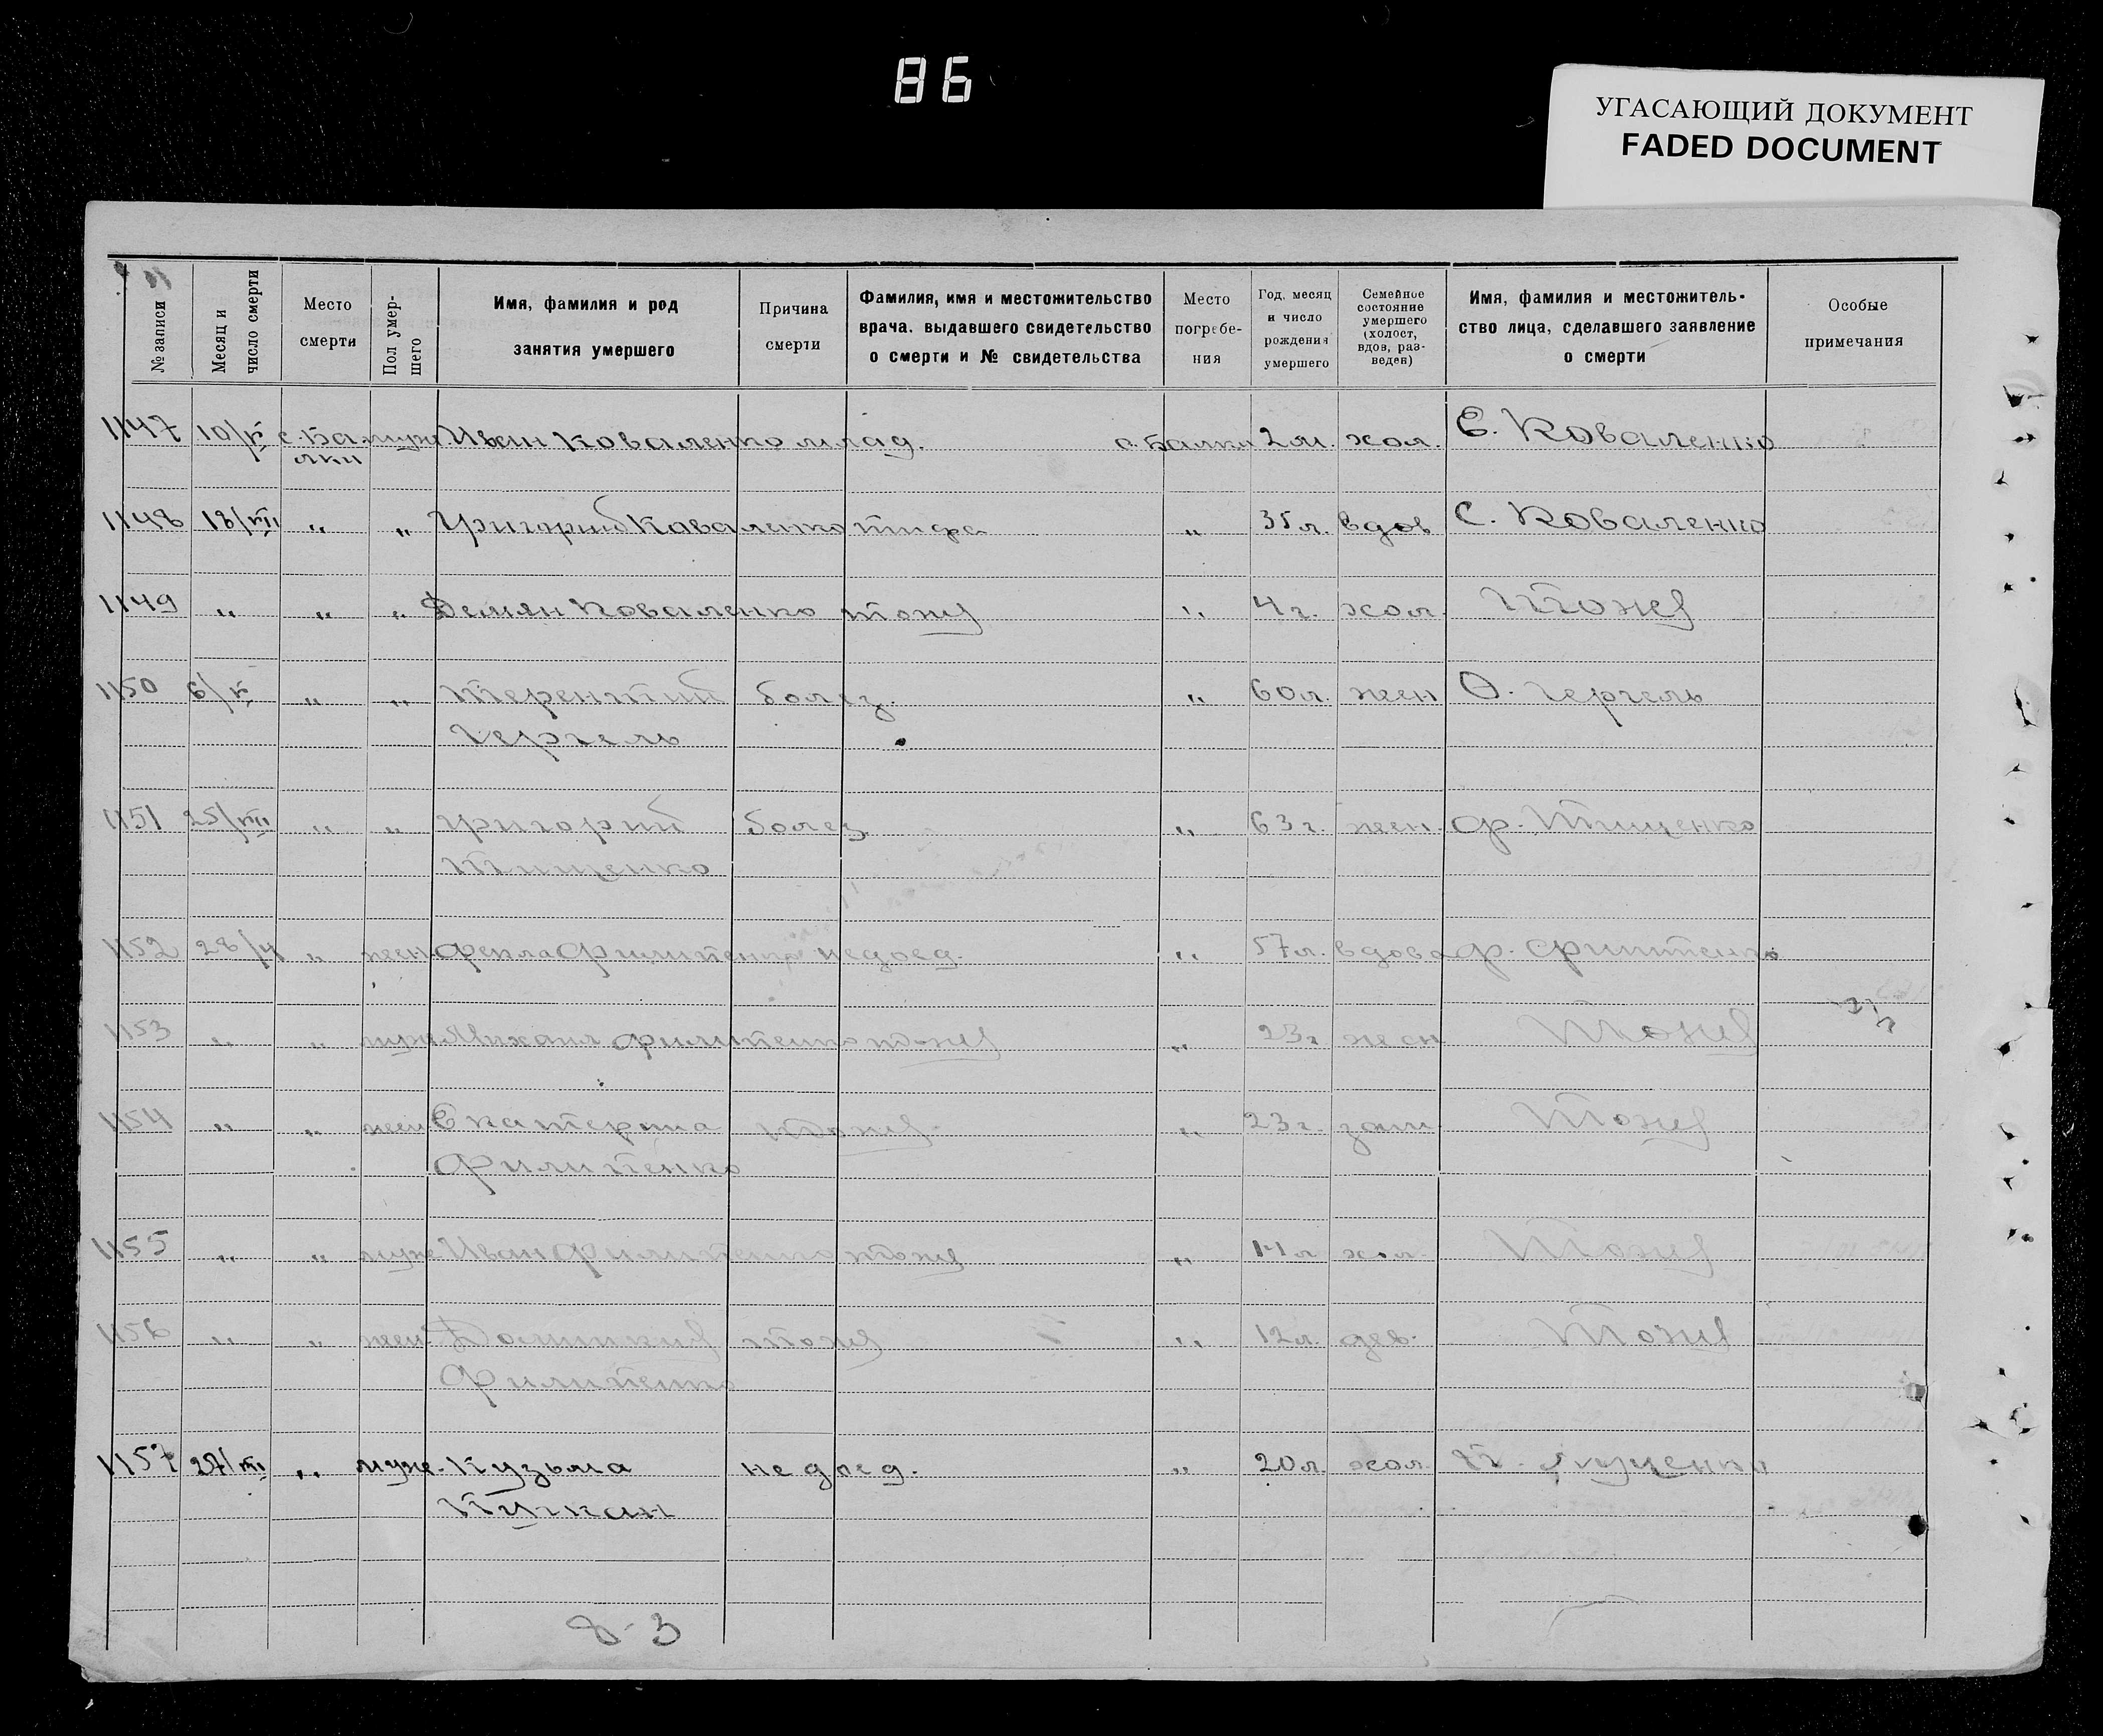 86
УГАСАЮЩИЙ ДОКУМЕНТ
FADED DOCUMENT
№ записи
Месяц и число смерти
Место смерти
Пол умер-
шего
Имя, фамилия и род
занятия умершего
Причина
смерти
Фамилия, имя и местожительство
врача, выдавшего свидетельство
о смерти и № свидетельства
Место
погребе-
ния
Год, месяц
и число
рождения
умершего
Семейное
состояние
умершего
(холост,
вдов, раз-
веден)
Имя, фамилия и местожитель-
ство лица, сделавшего заявление
о смерти
Особые
примечания
1147 10/ с. Ба- муж. Иван Коваленко млад. с. Балки 2 м. хол. Е. Коваленко
лки
1148 18/VII " " Григорий Коваленко тифа " 35 л. вдов С. Коваленко
1149 " " " Демян Коваленко тоже " 4 г. хол. Тоже
1150 6/ " " Терентий болез. " 60 л. жен Ф. Гергель
Гергель
1151 25/VII " " Григорий болез. " 63 г. жен. Ф. Тищенко
Тищенко
1152 28/ " жен. Фекла Филипенко недоед. " 57 л. вдова Ф. Филипенко
1153 " " муж Михаил Филипенко тоже " 23 г. жен Тоже
1154 " " жен. Екатерина тоже " 23 г. зам. Тоже
Филипенко
1155 " " муж Иван Филипенко тоже " 14 л хол. Тоже
1156 " " жен. тоже " 12 л. дев. Тоже
Филипенко
1157 27/ " муж. Кузьма недоед. " 20 л. хол.
8-3